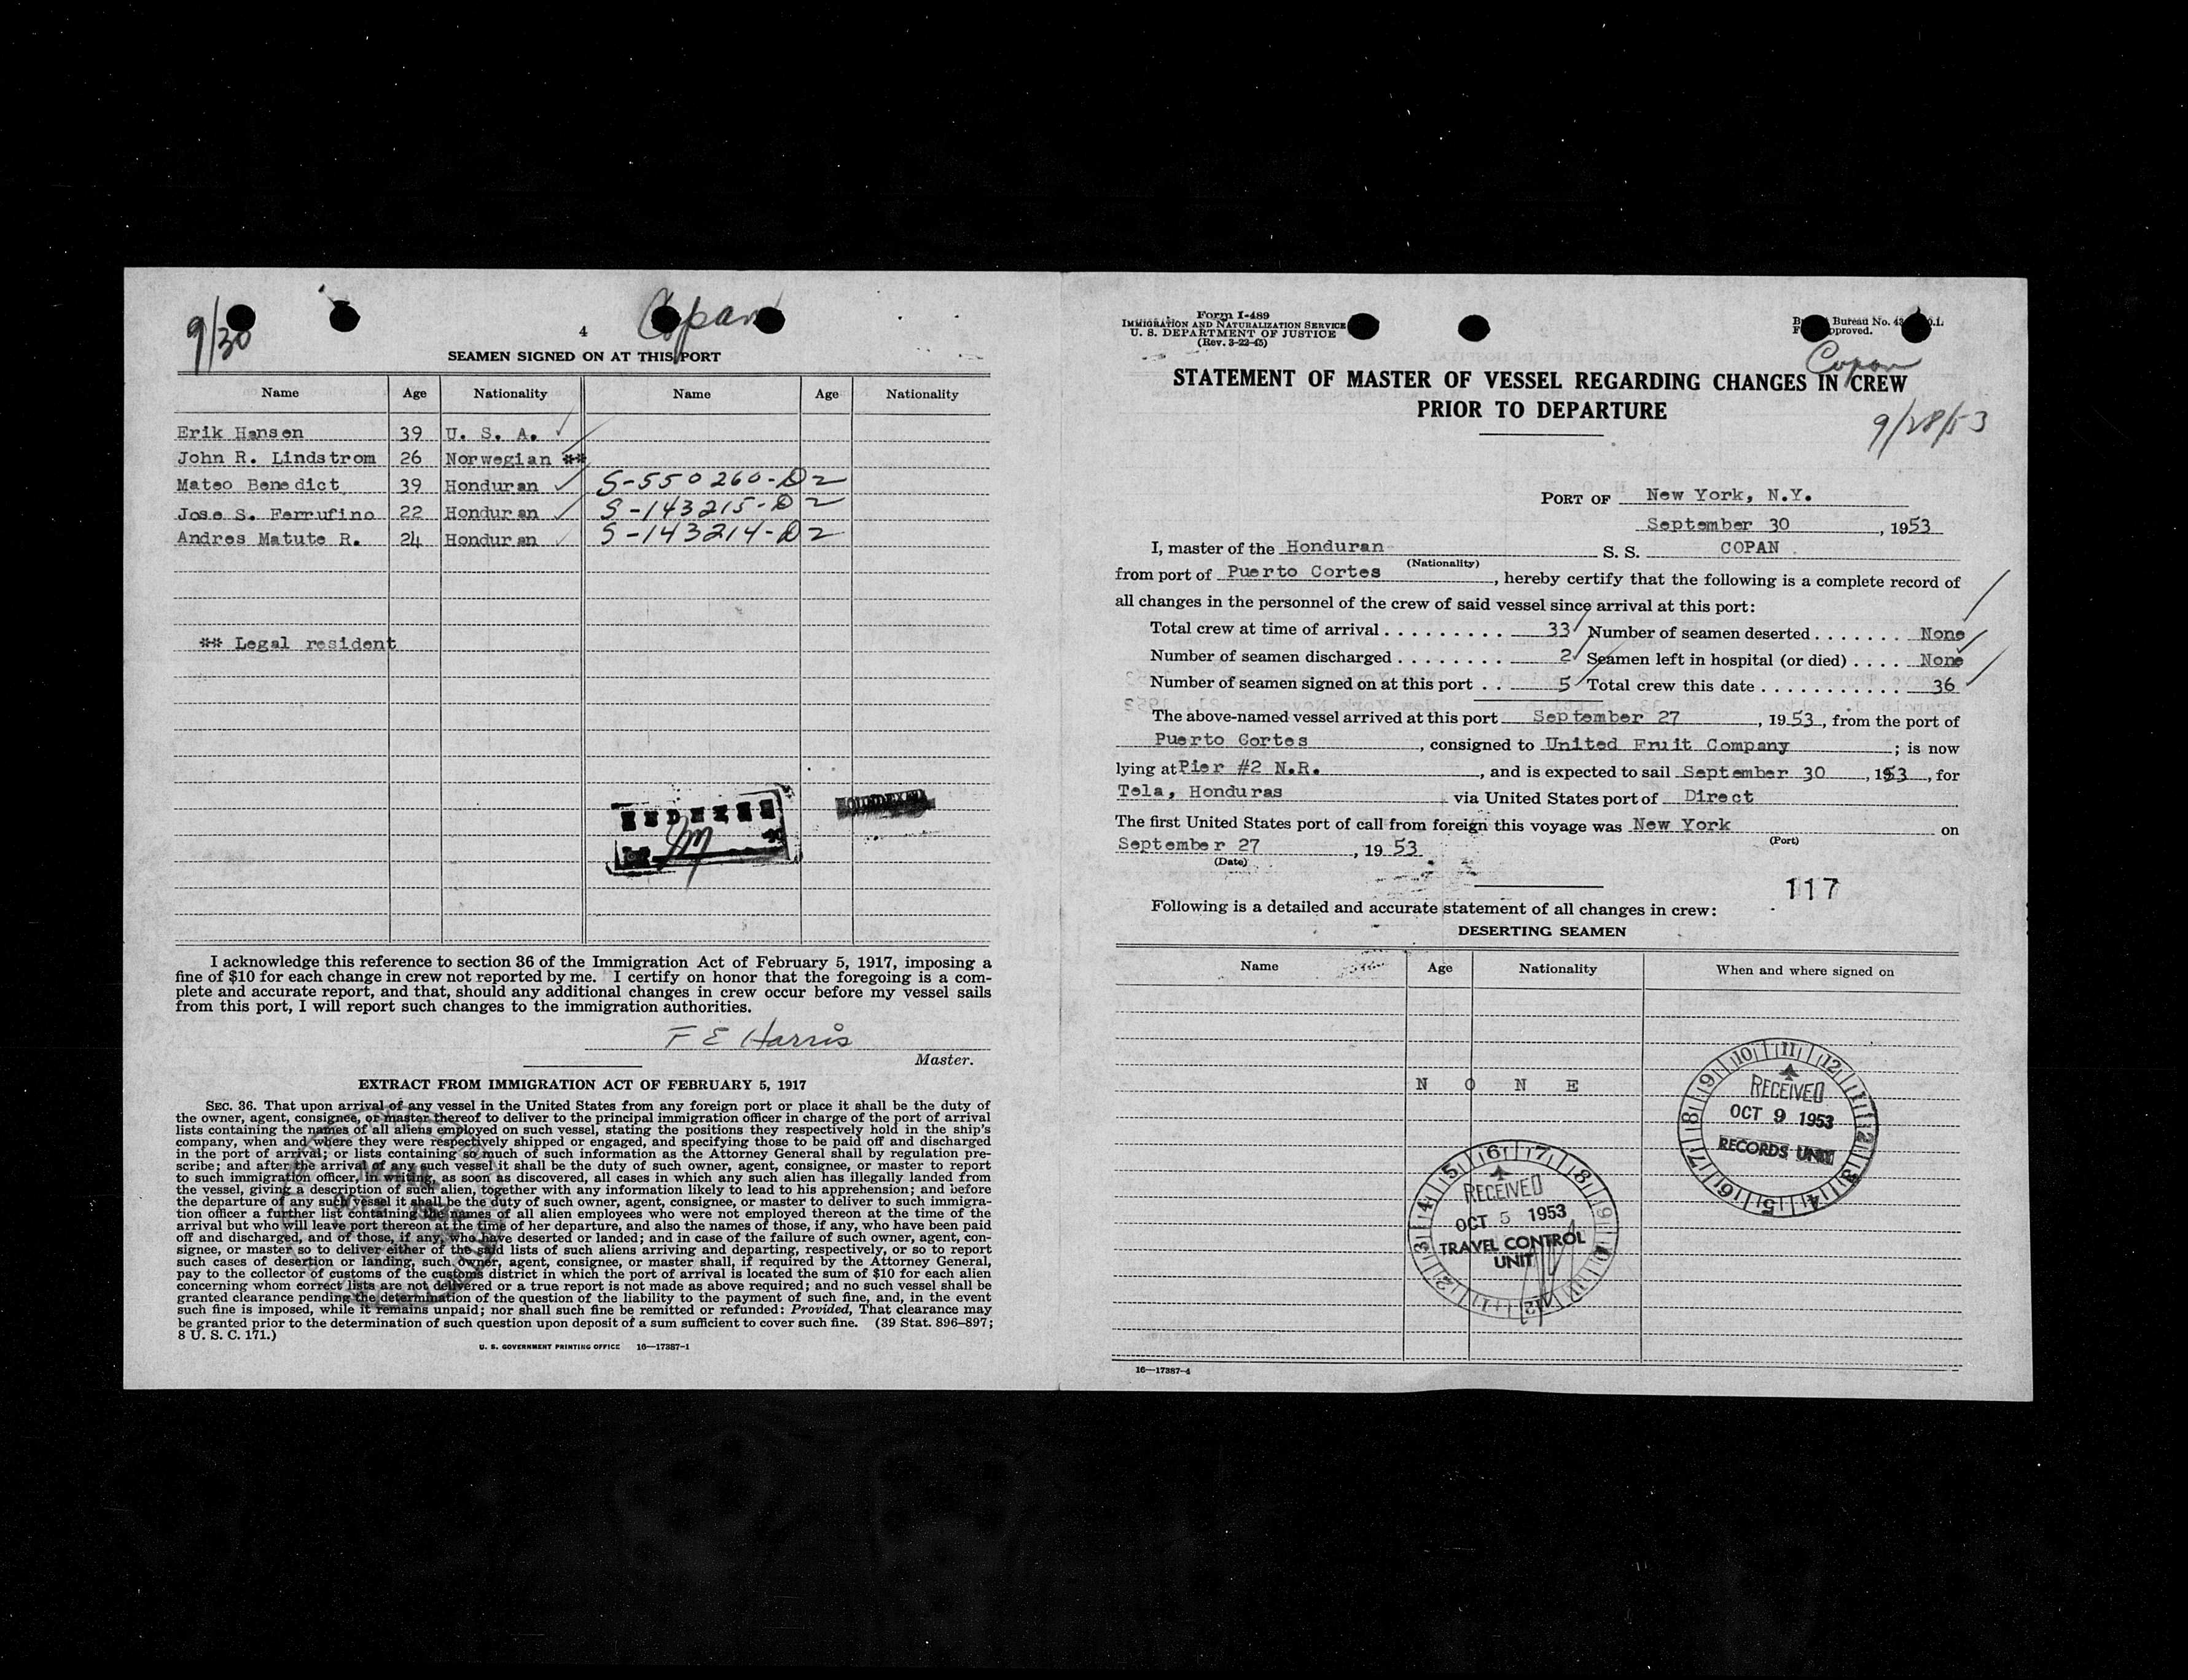 9/30
Copan
4
SEAMEN SIGNED ON AT THIS PORT
Name Age Nationality Name Age Nationality
Erik Hansen 39 U. S. A.
John R. Lindstrom 26 Norwegian **
Mateo Benedict 39 Honduran S-550260-D2
Jose S. Ferrufino 22 Honduran S-143215-D2
Andres Matute R. 24 Honduran S-143214-D2
** Legal resident
I acknowledge this reference to section 36 of the Immigration Act of February 5, 1917, imposing a
fine of $10 for each change in crew not reported by me. I certify on honor that the foregoing is a com-
plete and accurate report, and that, should any additional changes in crew occur before my vessel sails
from this port, I will report such changes to the immigration authorities.
F E Harris
Master.
EXTRACT FROM IMMIGRATION ACT OF FEBRUARY 5, 1917
SEC. 36. That upon arrival of any vessel in the United States from any foreign port or place it shall be the duty of
the owner, agent, consignee, or master thereof to deliver to the principal immigration officer in charge of the port of arrival
lists containing the names of all aliens employed on such vessel, stating the positions they respectively hold in the ship's
company, when and where they were respectively shipped or engaged, and specifying those to be paid off and discharged
in the port of arrival; or lists containing so much of such information as the Attorney General shall by regulation pre-
scribe; and after the arrival of any such vessel it shall be the duty of such owner, agent, consignee, or master to report
to such immigration officer, in writing, as soon as discovered, all cases in which any such alien has illegally landed from
the vessel, giving a description of such alien, together with any information likely to lead to his apprehension; and before
the departure of any such vessel it shall be the duty of such owner, agent, consignee, or master to deliver to such immigra-
tion officer a further list containing the names of all alien employees who were not employed thereon at the time of the
arrival but who will leave port thereon at the time of her departure, and also the names of those, if any, who have been paid
off and discharged, and of those, if any, who have deserted or landed; and in case of the failure of such owner, agent, con-
signee, or master so to deliver either of the said lists of such aliens arriving and departing, respectively, or so to report
such cases of desertion or landing, such owner, agent, consignee, or master shall, if required by the Attorney General,
pay to the collector of customs of the customs district in which the port of arrival is located the sum of $10 for each alien
concerning whom correct lists are not delivered or a true report is not made as above required; and no such vessel shall be
granted clearance pending the determination of the question of the liability to the payment of such fine, and, in the event
such fine is imposed, while it remains unpaid; nor shall such fine be remitted or refunded: Provided, That clearance may
be granted prior to the determination of such question upon deposit of a sum sufficient to cover such fine. (39 Stat. 896–897;
8 U. S. C. 171.)
U. S. GOVERNMENT PRINTING OFFICE 16—17387-1
Form I-489
IMMIGRATION AND NATURALIZATION SERVICE
U. S. DEPARTMENT OF JUSTICE
(Rev. 3-22-45)
Bureau No.
Copan
STATEMENT OF MASTER OF VESSEL REGARDING CHANGES IN CREW
PRIOR TO DEPARTURE
9/28/53
PORT OF New York, N.Y.
September 30, 1953
I, master of the Honduran S. S. COPAN
(Nationality)
from port of Puerto Cortes, hereby certify that the following is a complete record of
all changes in the personnel of the crew of said vessel since arrival at this port:
Total crew at time of arrival . . . . . . . . . 33 Number of seamen deserted . . . . . . . None
Number of seamen discharged . . . . . . . . 2 Seamen left in hospital (or died) . . . . None
Number of seamen signed on at this port . . 5 Total crew this date . . . . . . . . . . . . 36
The above-named vessel arrived at this port September 27, 1953, from the port of
Puerto Cortes, consigned to United Fruit Company; is now
lying at Pier #2 N.R., and is expected to sail September 30, 1953, for
Tela, Honduras via United States port of Direct
The first United States port of call from foreign this voyage was New York on
(Port)
September 27, 1953
(Date)
117
Following is a detailed and accurate statement of all changes in crew:
DESERTING SEAMEN
Name Age Nationality When and where signed on
N O N E
RECEIVED
OCT 9 1953
RECORDS UNIT
RECEIVED
OCT 5 1953
TRAVEL CONTROL
UNIT
16—17387-4